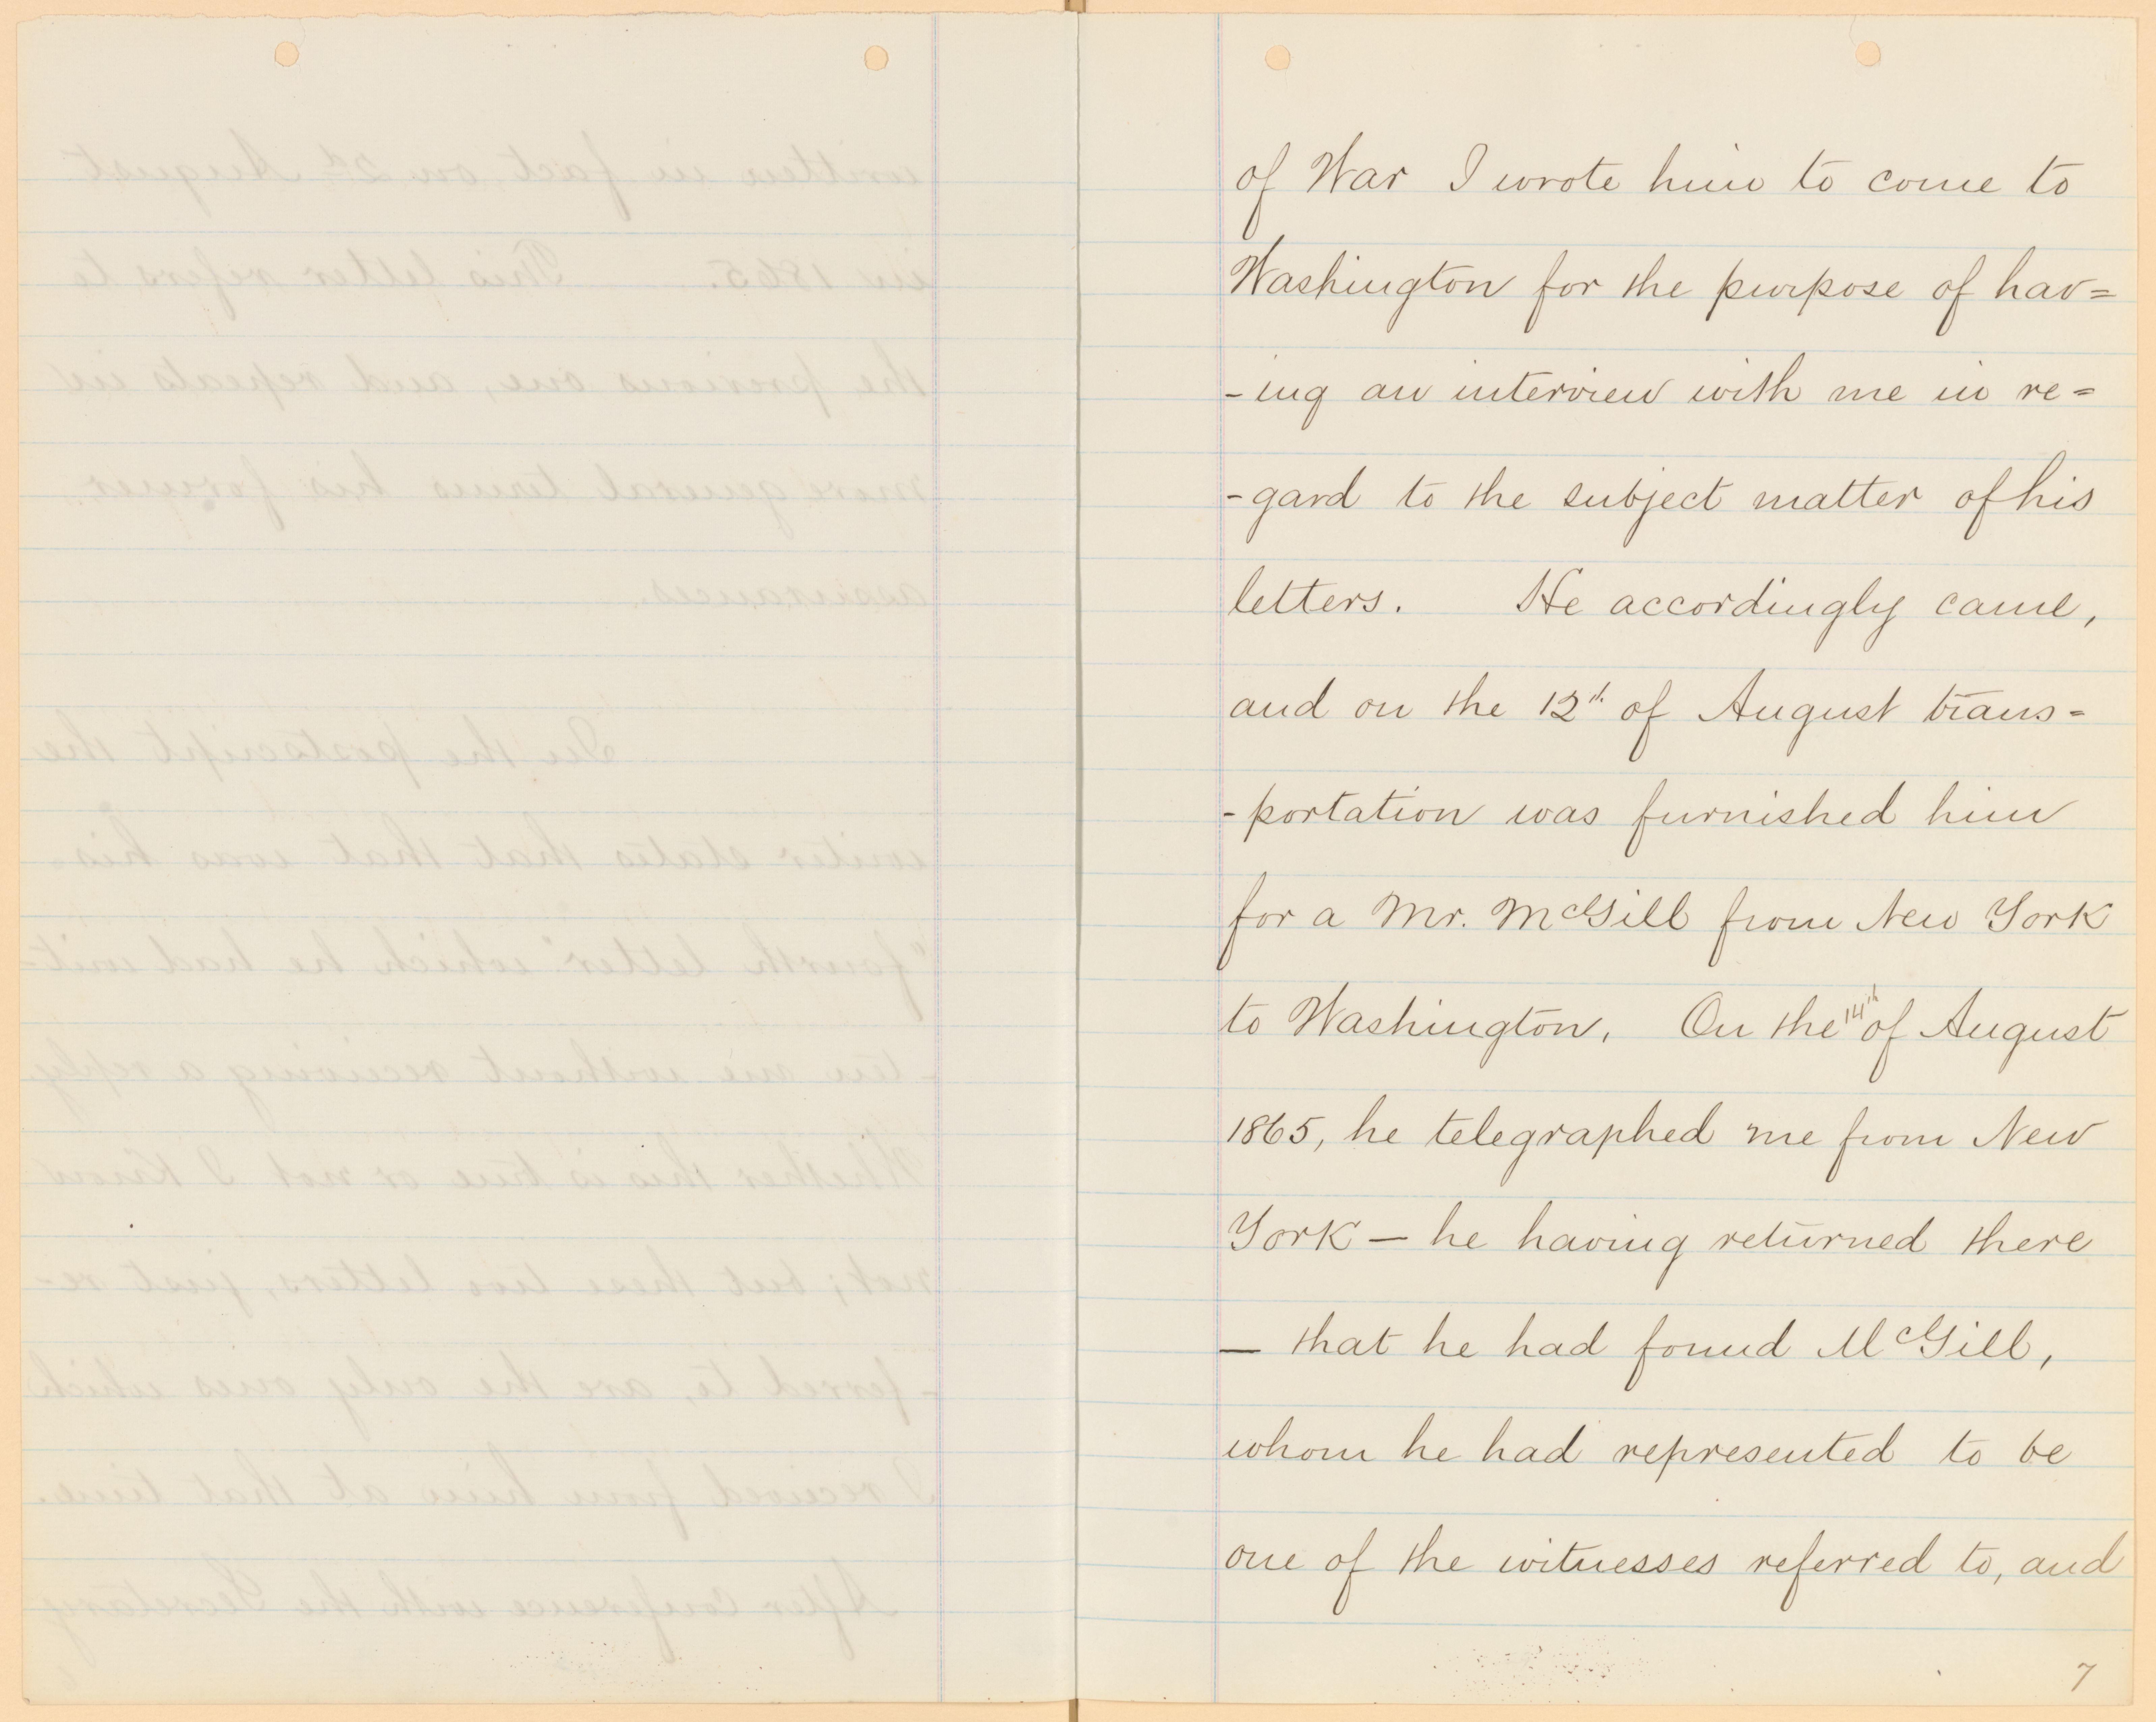 of War I wrote him to come to
Washington for the purpose of hav=
-ing an interview with me in re=
-gard to the subject matter of his
letters. He accordingly came,
and on the 12th of August trans=
-portation was furnished him
for a Mr. McGill from New York
to Washington. On the 14th of August
1865, he telegraphed me from New
York — he having returned there
— that he had found McGill,
whom he had represented to be
one of the witnesses referred to, and
7